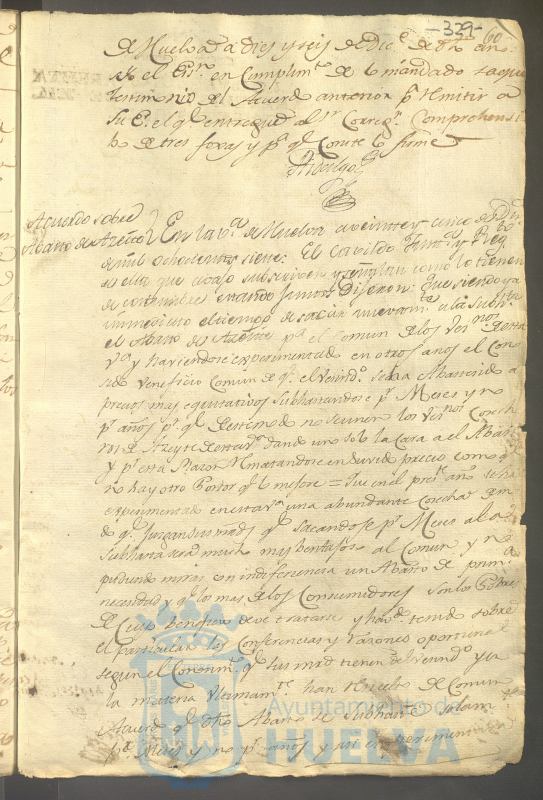 -339- 60
de Huelva a dies y seis de Dic.e de dho año
Yo el Es.no en Cumplim.to de lo mandado saque
testimonio del Acuerdo anterior p.a remitir a
Su E. el q.e entregué al S.r Correg.r Comprehensi
bo de tres foxas y p.a q.e Conste lo firmé
Hidalgo
Acuerdo sobre el
Abasto de Azeite
En la v.a de Huelva a veinte y cinco de Di.re
de mil ochocientos siete: El Cavildo Just.a y Reg.to
de esta que avajo subscriven y señalan como lo tienen
de costumbre estando Juntos Dijeron: Que siendo ya
inmediato el tiempo de sacar nuevam.te a la Subasta
el Abasto de Azeite p.a el comun de los vez.nos de esta
v.a y haviendose experimentado en otros años el Cono
sido veneficio Comun de q.e el vecind.o se ha Abastesido a
precios mas equitativos subhastandose p.r Meses y no
p.r años p.r q.e de este modo no se unen los vez.nos Coseche
ros de Azeyte de esta v.a dando uno solo la Cara a el Abasto
y p.r esta Razon Rematandose en suvido precio como q.e
no hay otro Postor q.e lo mejore = Que en el pres.te año se ha
experimentado en esta v.a una abundante Cosecha de mo
do q.e Juzgan sus m.ds q.e sacandose p.r Meses al a
Subhasta sera mucho mas ventajoso al Comun y no
pudiendo mirar con indiferencia un Abasto de prim.a
necesidad y q.e los mas de los Consumidores son los Pobres
de Cuio beneficio deve tratarse y haviend.o tenido sobre
el particular las Conferencias y razones oportunas
segun el Conosim.to q.e sus m.ds tienen del vecind.o y a
la materia Unanimem.te han Resuelto de Comun
Acuerdo q.e dho Abasto se Subhaste solam.te
p.r Meses y no p.r años y asi
Ayuntamiento de
HUELVA